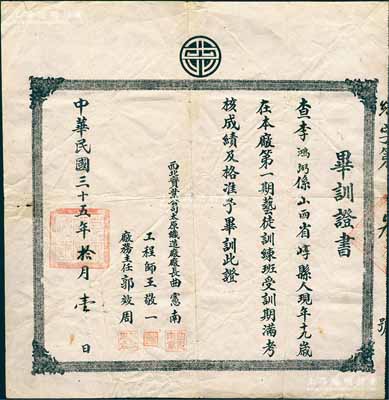 畢訓證書
查李鴻弼係山西省崞縣人現年十九歲
在本廠第一期藝徒訓練班受訓期滿考
核成績及格准予畢訓此證
西北實業公司太原織造廠廠長曲憲南
工程師王敬一
廠務主任郭效周
中華民國三十五年拾月壹日
號